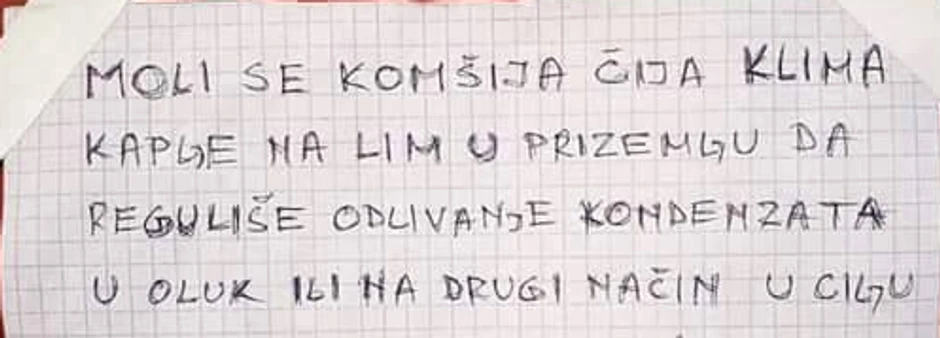 MOLI SE KOMŠIJA ČIJA KLIMA
KAPLJE NA LIM U PRIZEMLJU DA
REGULIŠE ODLIVANJE KONDENZATA
U OLUK ILI NA DRUGI NAČIN U CILJU